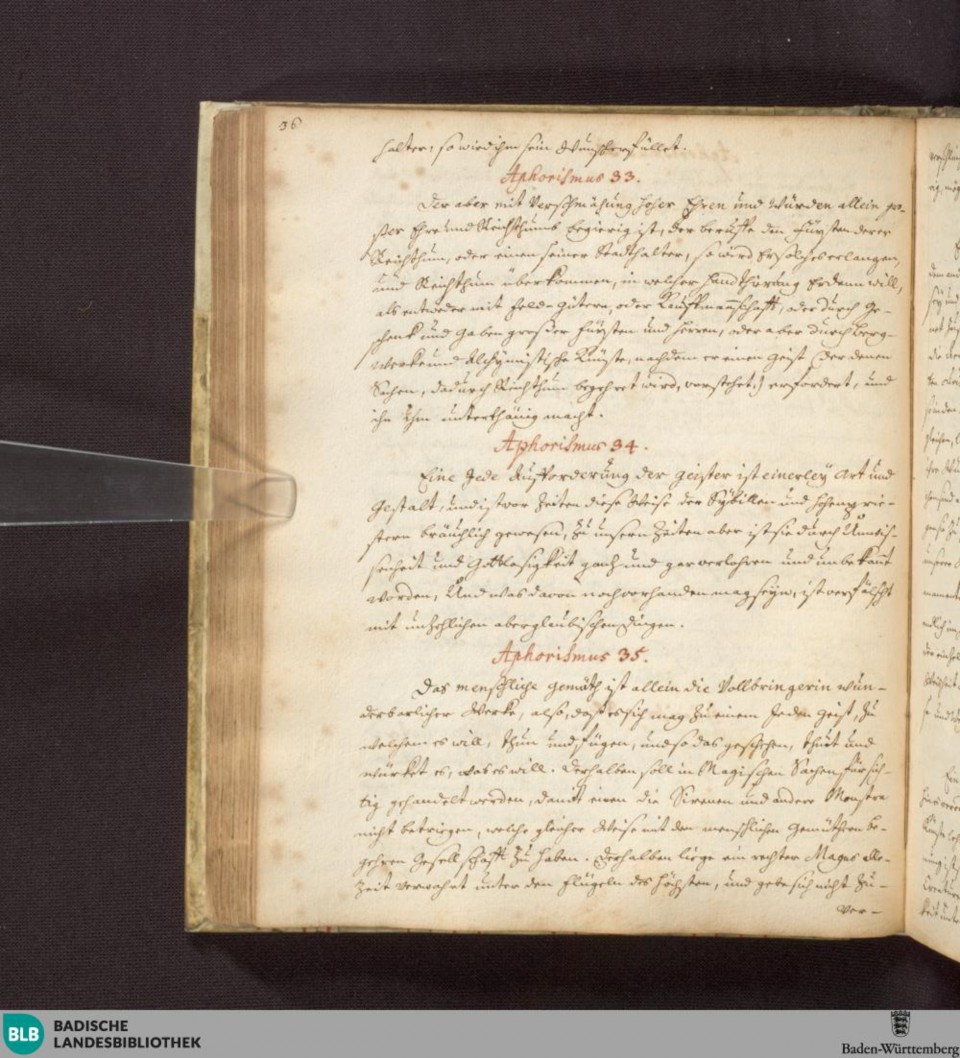 36
halter, so wird ihm sein Wunsch erfüllet.
Aphorismus 33.
Der aber mit Verschmähung hoher Ehren und Würden allein
Ehre und Reichthums begierig ist, der beruffe den Fürsten derer
Reichthum, oder einen seiner Stadthalter, so wird Er solches erlangen,
und Reichthum überkommen, in welcher handthirung Er denn will,
als entweder mit feld-gütern, oder Kauffmanschafft, oder durch Ge-
schenk und Gaben grosser Fürsten und Herren, oder aber durch Berg-
wercke und Alchymistische Künste, nachdem er einen Geist (der denen
Sachen, dadurch Reichthum begehret wird, vorstehet) erfordert, und
ihn Ihm unterthänig macht.
Aphorismus 34.
Eine Jede Aufforderung der Geister ist einerley Art und
Gestalt, und ist vor Zeiten diese Weise der Sybillen und hohenprie-
stern bräuchlich gewesen, Zu unsern Zeiten aber ist sie durch Unwis-
senheit und Gottlosigkeit gantz und gar verlohren und unbekant
worden, Und was davon noch vorhanden mag seyn, ist verfälscht
mit unzehlichen aberglaubischen Dingen.
Aphorismus 35.
Das menschliche gemüth ist allein die Vollbringerin wun-
derbarlicher Wercke, also, daß es sich mag zu einem Jeden Geist, zu
welchem es will, thun und fügen, und so das geschehen, thut und
würket es, was es will. Derhalben soll in Magischen Sachen fürsich-
tig gehandelt werden, damit einen die Sirenen und andere Monstra
nicht betriegen, welche gleicher Weise mit den menschlichen Gemüthern be-
gehren Gesellschafft zu haben. Derhalben liege ein rechter Magus alle-
Zeit verwahrt unter den Flügeln des Höchsten, und gebe sich nicht zu-
ver-
BLB BADISCHE
LANDESBIBLIOTHEK
Baden-Württemberg